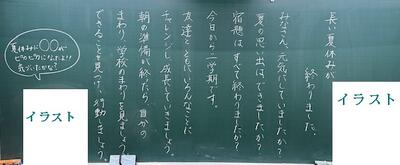 長い夏休みが
終わりました。
みなさん、元気にしていましたか?
夏の思い出は、できましたか?
宿題は、すべて終わりましたか?
今日から二学期です。
友達とともにいろんなことに
チャレンジし、成長していきましょう。
朝の準備が終わったら、自分の
まわり、学校のまわりを見ましょう。
できることを見つけ、行動しましょう。
夏休みに○○が
ピカピカになったよ!!
気づいたかな?
イラスト
イラスト